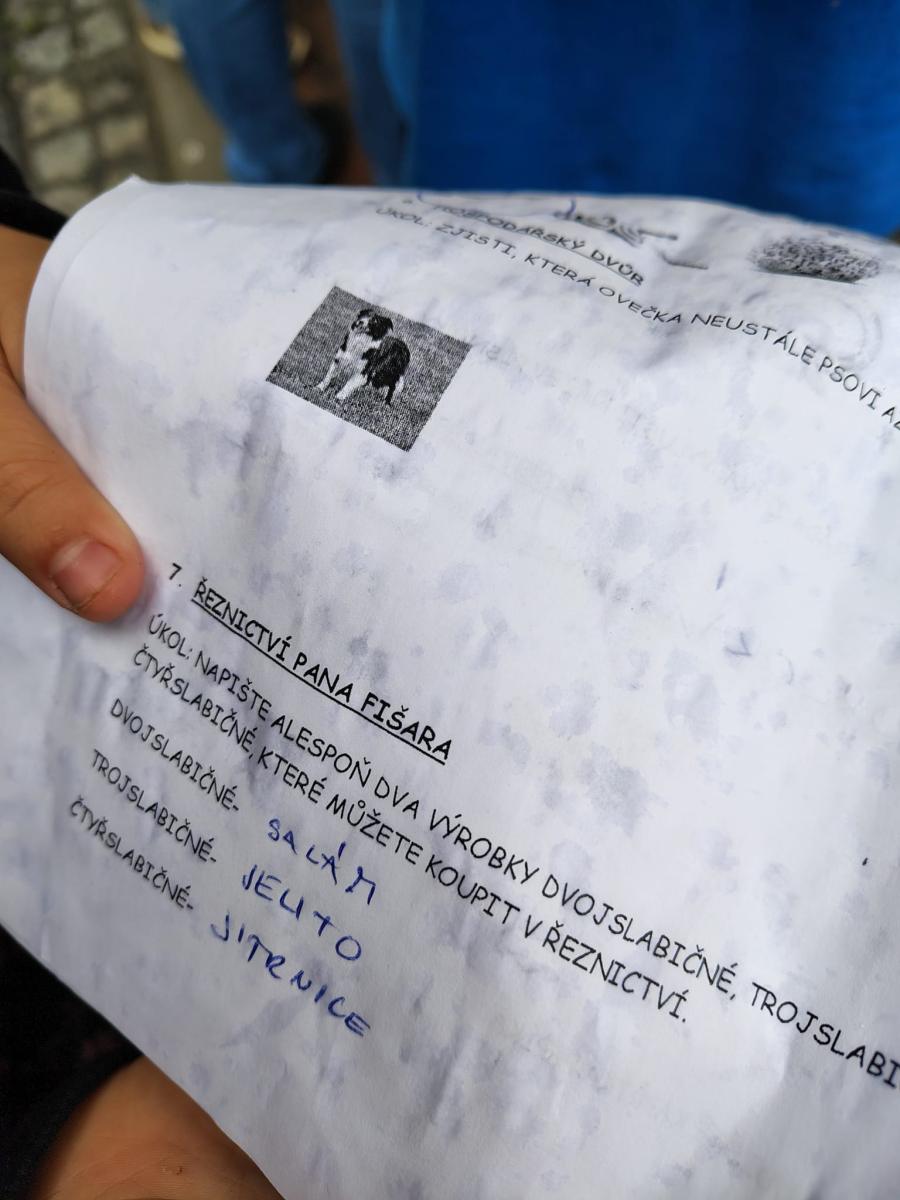 HOSPODÁŘSKÝ DVŮR
ÚKOL: ZJISTI, KTERÁ OVEČKA NEUSTÁLE PSOVI
7. ŘEZNICTVÍ PANA FIŠARA
ÚKOL: NAPIŠTE ALESPOŇ DVA VÝROBKY DVOJSLABIČNÉ, TROJSLABI
ČTYŘSLABIČNÉ, KTERÉ MŮŽETE KOUPIT V ŘEZNICTVÍ.
DVOJSLABIČNÉ- SALÁM
TROJSLABIČNÉ- JELITO
ČTYŘSLABIČNÉ- JITRNICE